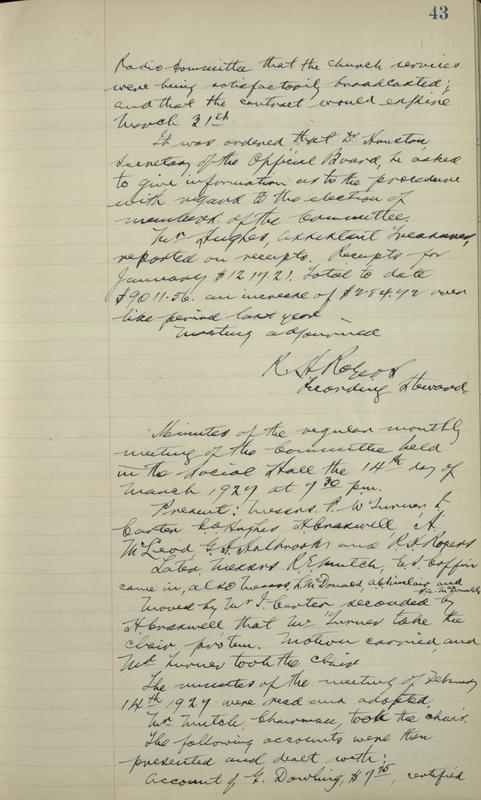 43
Radio Committee that the church services
were being satisfactorily broadcasted;
and that the contract would expire
March 31st
It was ordered that Dr Houston,
Secretary of the Official Board, be asked
to give information as to the procedure
with regard to the election of
members of the Committee.
Mr Hughes, assistant Treasurer,
reported on receipts. Receipts for
January $1219.21. Total to date
$9011.56. an increase of $284.42 over
like period last year
Meeting adjourned
R H Rogers
Recording Steward
Minutes of the regular monthly
meeting of the Committee held
in the Social Hall the 14th day of
March 1927 at 7 30 p.m.
Present: Messrs. P. W Turner, I
Carter, E A Hughes, H Craswell, A
McLeod, G. H. Holbrook and R H Rogers
Later Messrs R E Mutch, Coffin
came in, also Messrs McDonald, Sinclair and
McDonald
Moved by Mr I. Carter seconded by
H Craswell that Mr Turner take the
chair protem. Motion carried, and
Mr Turner took the chair
The minutes of the meeting of February
14th 1927 were read and adopted.
Mr Mutch, Chairman, took the chair.
The following accounts were then
presented and dealt with:
Account of G. Dowling, $7 75, certified